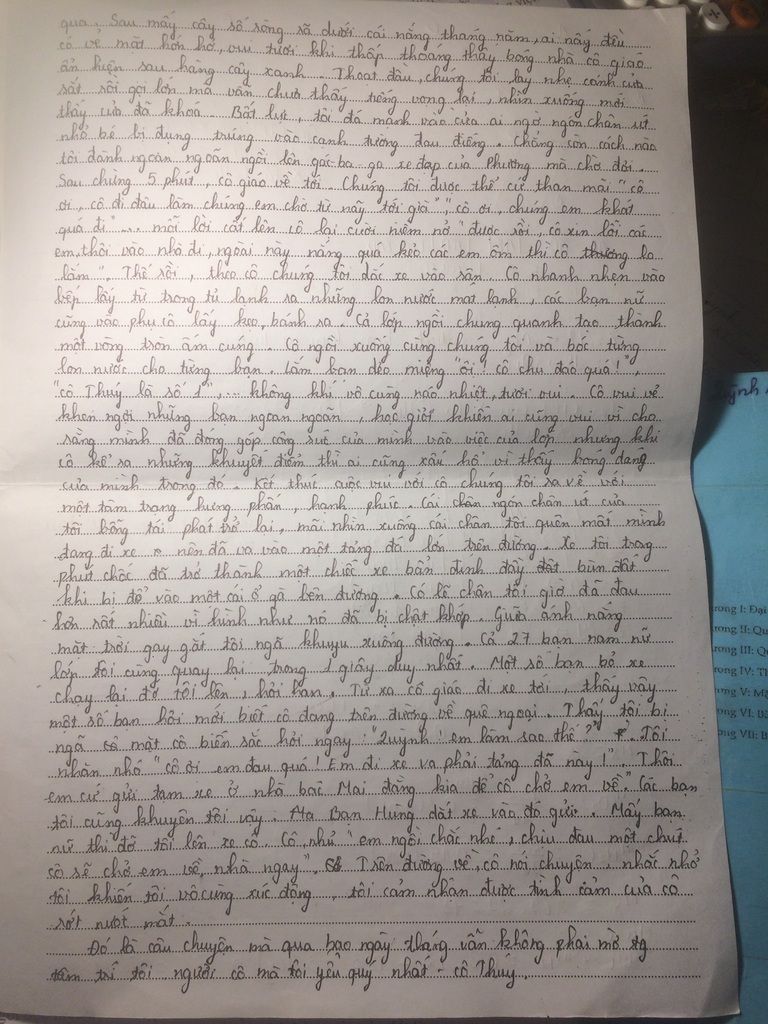 qua. Sau mấy cây số ròng rã dưới cái nắng tháng năm, ai nấy đều
có vẻ mặt hớn hở, vui tươi khi thấp thoáng thấy bóng nhà cô giáo
ẩn hiện sau hàng cây xanh. Thoạt đầu, chúng tôi lay nhẹ cánh cửa
sắt rồi gọi lớn mà vẫn chưa thấy tiếng vọng lại, nhìn xuống mới
thấy cửa đã khoá. Bất lực, tôi đá mạnh vào cửa ai ngờ ngón chân út
nhỏ bé bị đụng trúng vào cạnh tường đau điếng. Chẳng còn cách nào
tôi đành ngoan ngoãn ngồi lên gác-ba-ga xe đạp của Phương mà chờ đợi.
Sau chừng 5 phút, cô giáo về tới. Chúng tôi được thể cứ than mãi "cô
ơi, cô đi đâu làm chúng em chờ từ nãy tới giờ", "cô ơi, chúng em khát
quá đi"... mỗi lời cất lên cô lại cười niềm nở "được rồi, cô xin lỗi các
em, thôi vào nhà đi, ngoài này nắng quá kẻo các em ốm thì cô thương lo
lắm". Thế rồi, theo cô chúng tôi dắc xe vào sân. Cô nhanh nhẹn vào
bếp lấy từ trong tủ lạnh ra những lon nước mát lạnh, các bạn nữ
cũng vào phụ cô lấy kẹo, bánh ra. Cả lớp ngồi chung quanh tạo thành
một vòng tròn ấm cúng. Cô ngồi xuống cùng chúng tôi và bóc từng
lon nước cho từng bạn. Lắm bạn dẻo miệng "ôi! cô chu đáo quá!",
"cô Thuý là số 1",... không khí vô cùng náo nhiệt, tươi vui. Cô vui vẻ
khen ngợi những bạn ngoan ngoãn, học giỏi khiến ai cũng vui vì cho
rằng mình đã đóng góp công sức của mình vào việc của lớp nhưng khi
cô kể ra những khuyết điểm thì ai cũng xấu hổ vì thấy bóng dáng
của mình trong đó. Kết thúc cuộc vui với cô chúng tôi ra về với
một tâm trạng hưng phấn, hạnh phúc. Cái chân ngón chân út của
tôi bỗng tái phát trở lại, mãi nhìn xuống cái chân tôi quên mất mình
đang đi xe nên đã va vào một tảng đá lớn trên đường. Xe tôi trong
phút chốc đã trở thành một chiếc xe bản đinh đầy đất bùn đất
khi bị đổ vào một cái ổ gà bên đường. Có lẽ chân tôi giờ đã đau
hơn rất nhiều vì hình như nó đã bị chật khớp. Giữa ánh nắng
mặt trời gay gắt tôi ngã khuỵu xuống đường. Cả 27 bạn nam nữ
lớp tôi cùng quay lại trong 1 giây duy nhất. Một số bạn bỏ xe
chạy lại đỡ tôi lên, hỏi han. Từ xa cô giáo đi xe tới, thấy vậy
một số bạn hỏi mới biết cô đang trên đường về quê ngoại. Thấy tôi bị
ngã cô mặt cô biến sắc hỏi ngay: "Quỳnh! em làm sao thế?". Tôi
nhăn nhó "cô ơi em đau quá! Em đi xe va phải tảng đá này!". "Thôi
em cứ gửi tạm xe ở nhà bác Mai đằng kia để cô chở em về." Các bạn
tôi cũng khuyên tôi vậy. Bạn Hùng dắt xe vào đó gửi. Mấy bạn
nữ thì đỡ tôi lên xe cô. Cô nhủ "em ngồi chắc nhé, chịu đau một chút
cô sẽ chở em về nhà ngay". Trên đường về, cô nói chuyện, nhắc nhở
tôi khiến tôi vô cùng xúc động, tôi cảm nhận được tình cảm của cô
rớt nước mắt.
Đó là câu chuyện mà qua bao ngày tháng vẫn không phai mờ
tâm trí tôi người cô mà tôi yêu quý nhất - cô Thuý.
ương I: Đại
ương II: Qu
ương III: Qu
ương IV: T
ương V: Mộ
ơng VI: Bả
ơng VII: B